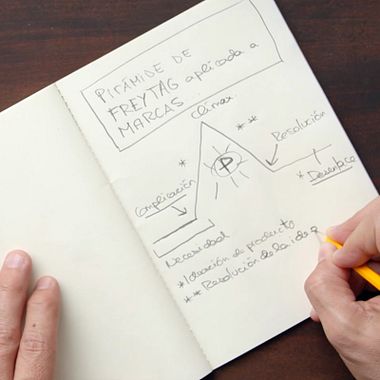 PIRÁMIDE DE
FREYTAG aplicada a
MARCAS
Clímax
* *
Resolución
*
P
Complicación
* Desenlace
Necesidad
* Ideación de producto
** Resolución de la idea